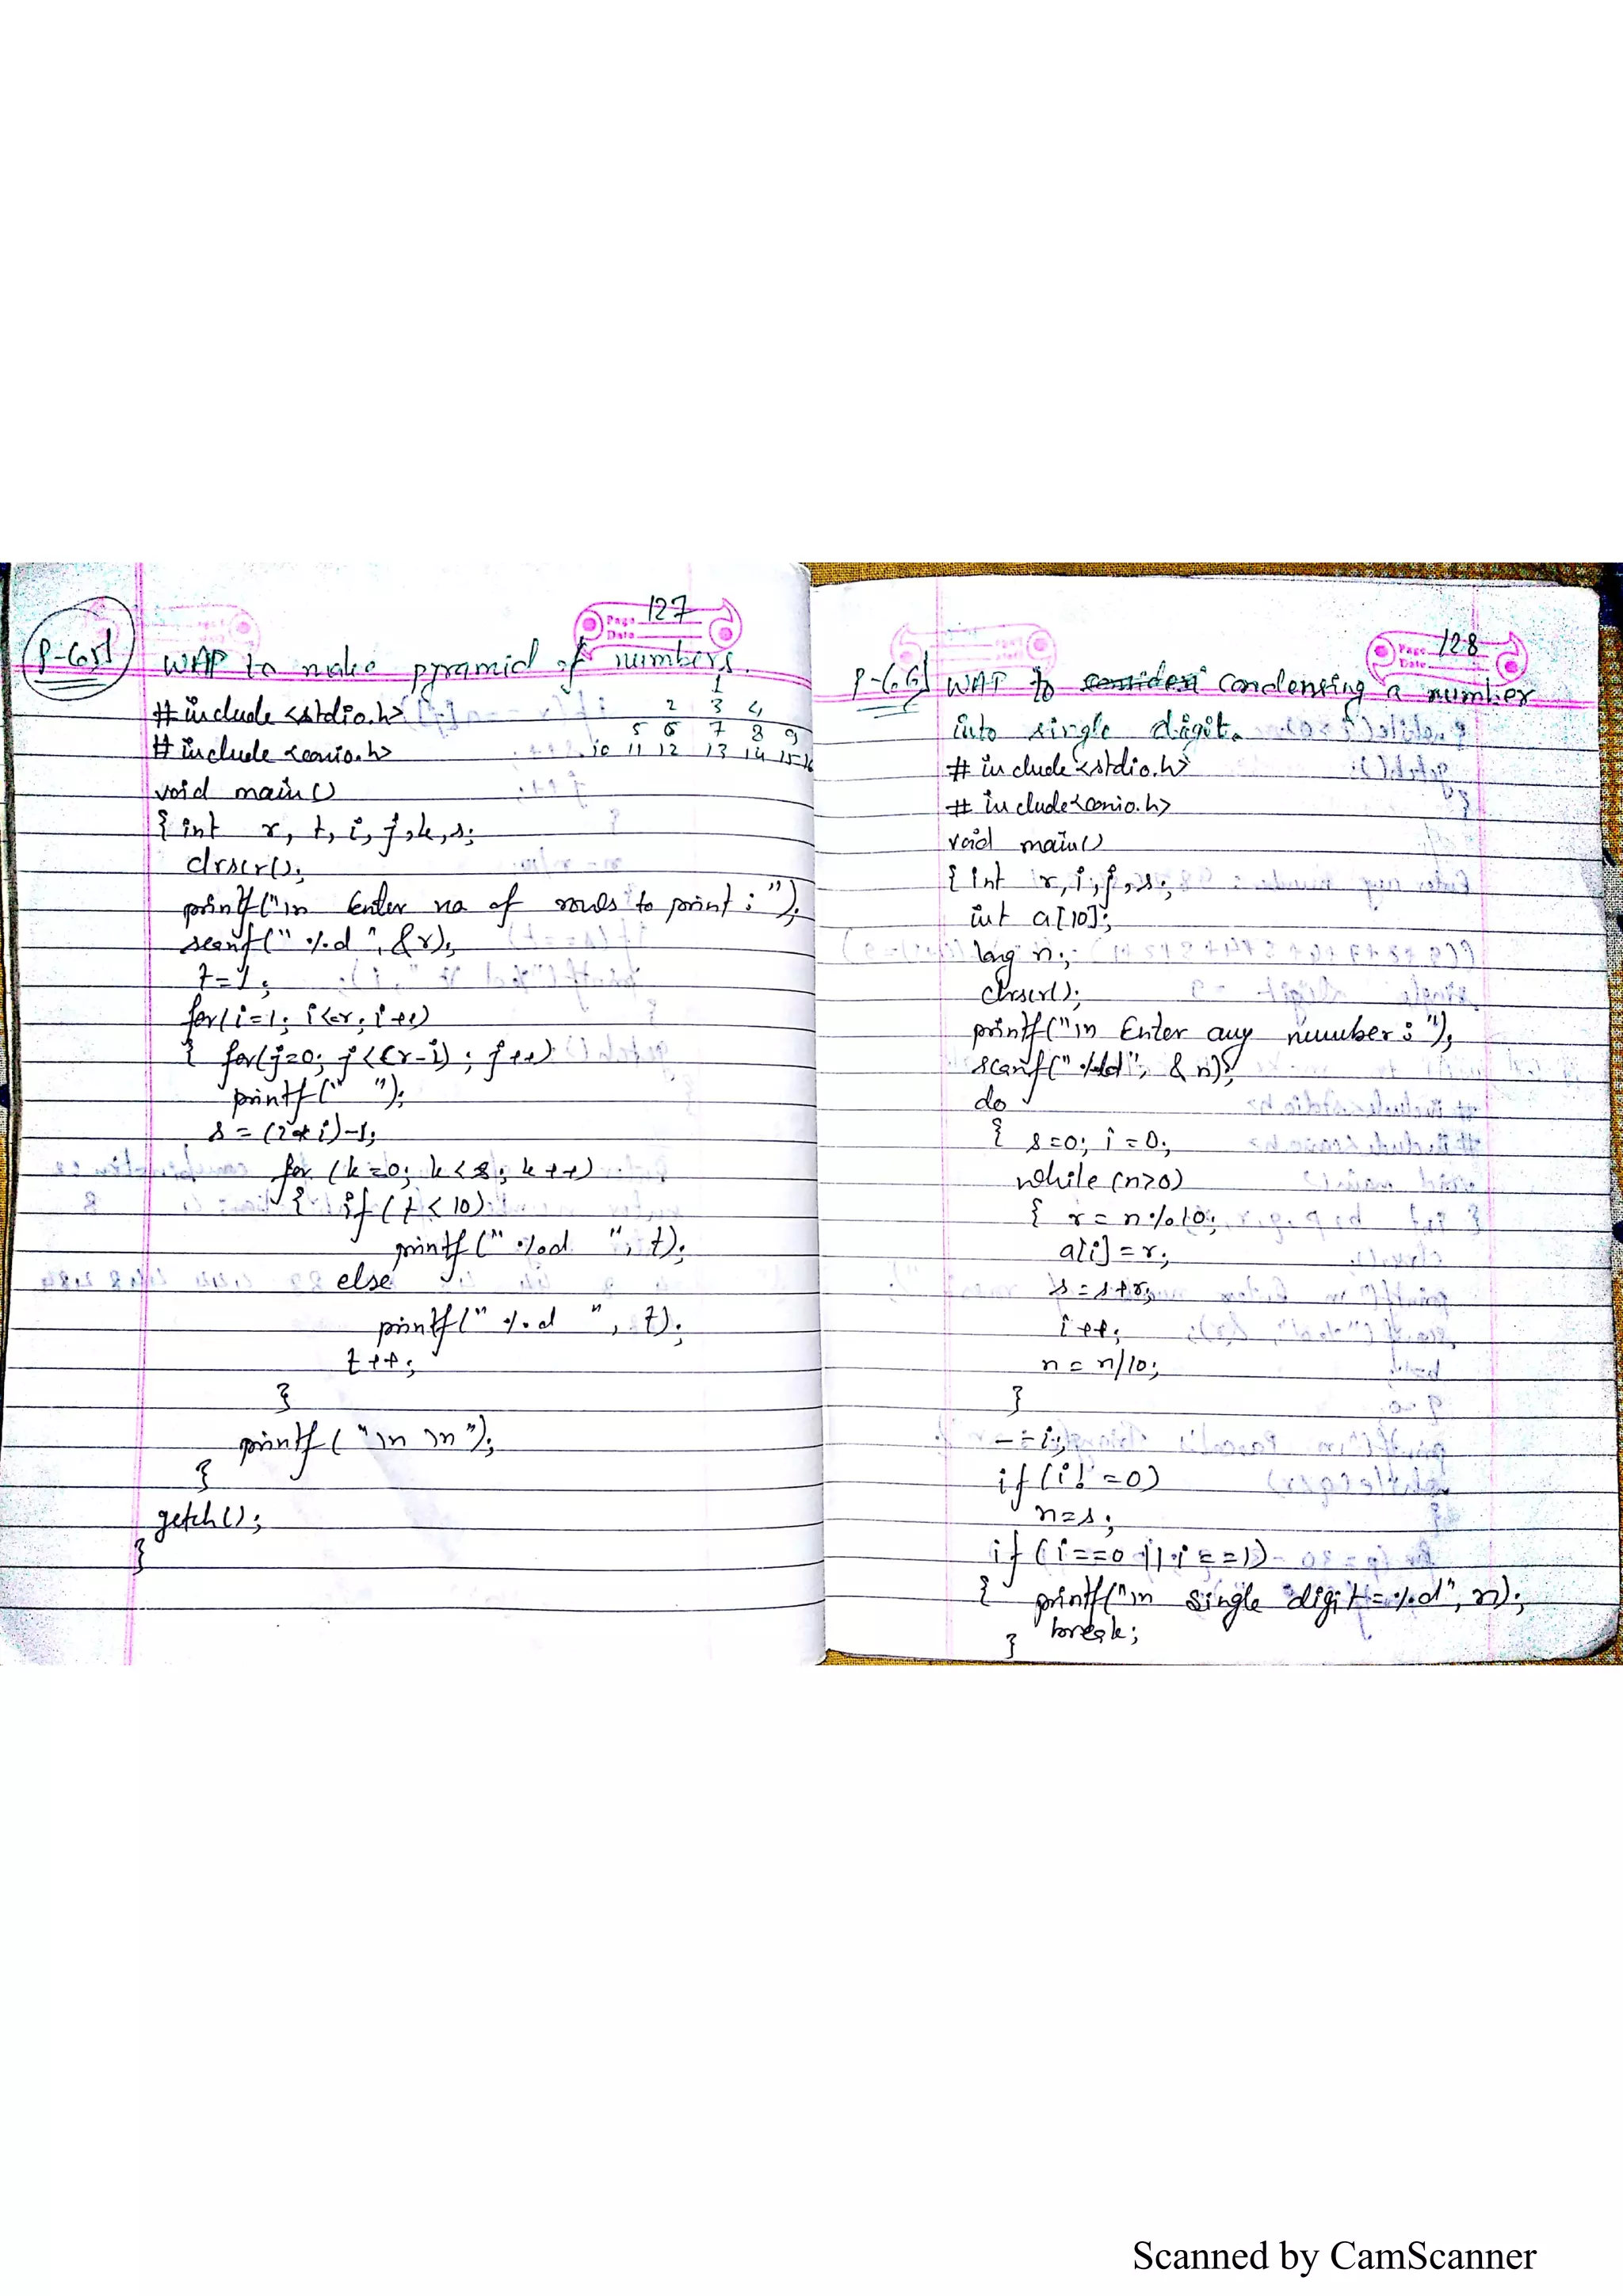 Page 127
Date
P-65]
WAP to make pyramid of numbers.
1
#include <stdio.h> 2 3 4
5 6 7 8 9
#include <conio.h> 10 11 12 13 14 15 16
void main()
{ int r, t, i, j, k, s;
clrscr();
printf("\n Enter no of rows to print : ");
scanf(" %d ", &r);
t=1;
for(i=1; i<=r; i++)
{ for(j=0; j<(r-i) ; j++)
printf(" ");
s = (2*i)-1;
for (k=0; k<s; k++)
{ if (t<10)
printf(" %d ", t);
else
printf(" %d ", t);
t++;
}
printf("\n \n");
}
getch();
}
Page 128
Date
P-66] WAP to condensing a number
into single digit.
#include <stdio.h>
#include <conio.h>
void main()
{ int r, i, j, s;
int a[10];
long n;
clrscr();
printf("\n Enter any number : ");
scanf(" %ld", &n);
do
{ s=0; i=0;
while (n>0)
{ r = n%10;
a[i]=r;
s=s+r;
i++;
n = n/10;
}
--i;
if (i!=0)
n=s;
if (i==0 || i==1)
{ printf("\n single digit = %d", n);
break;
}
Scanned by CamScanner